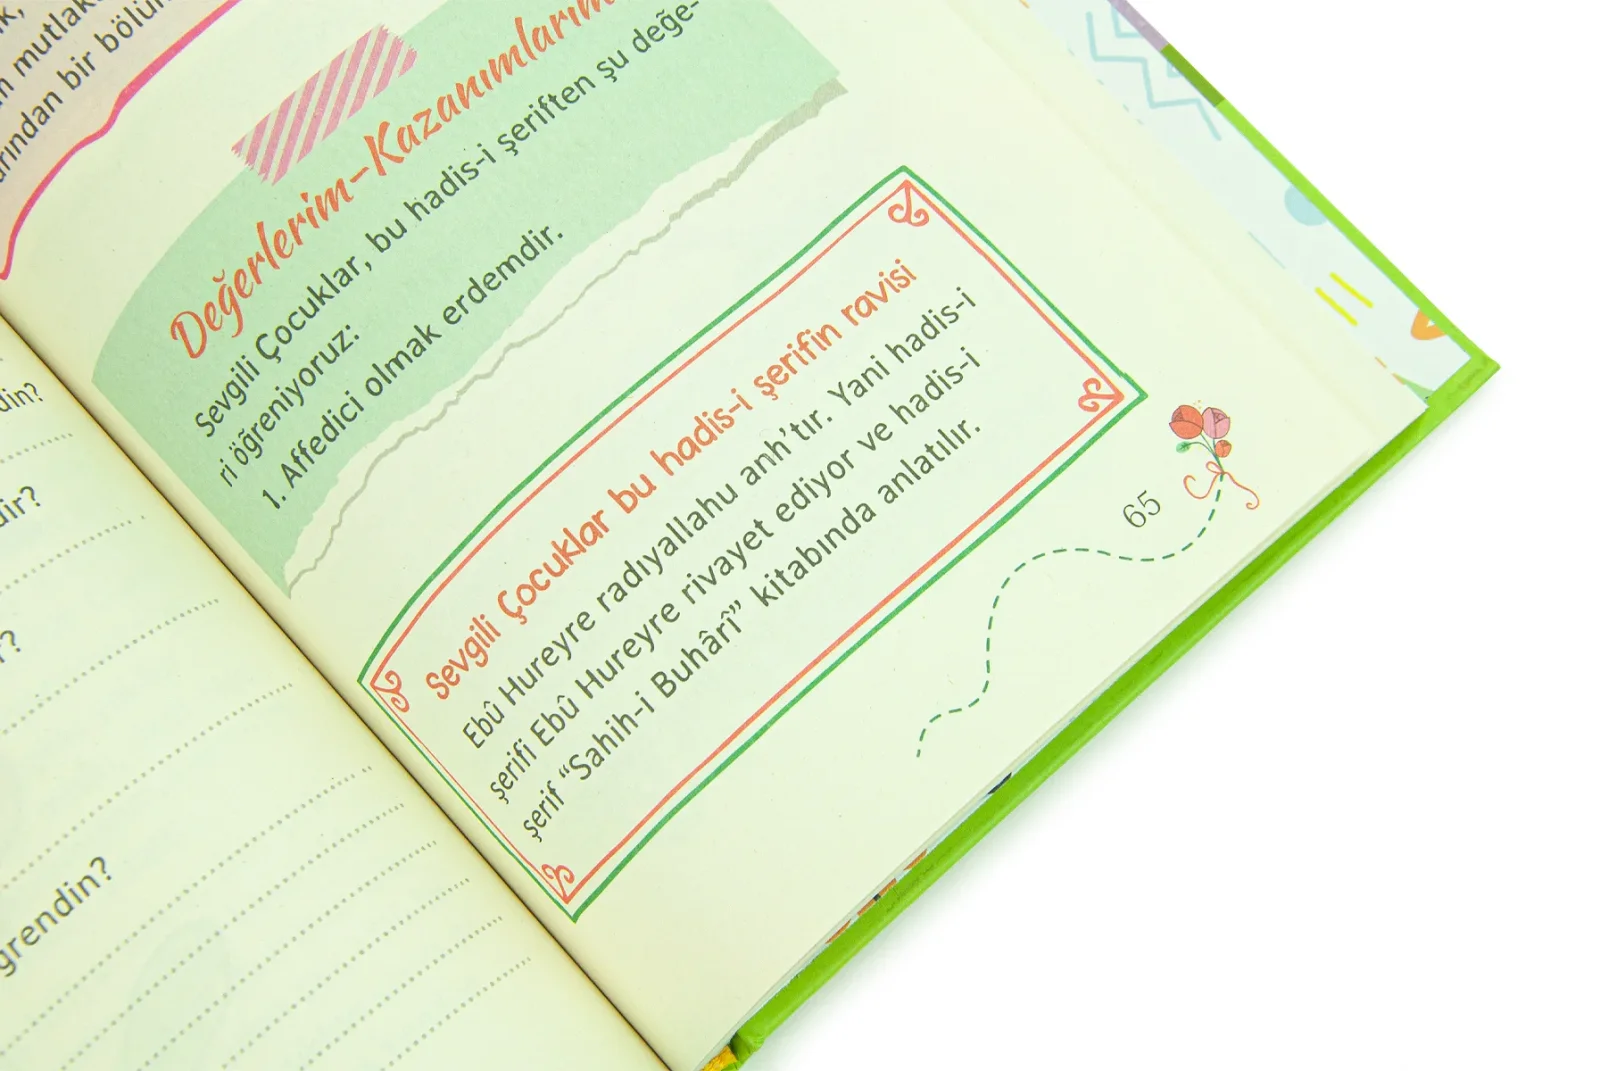 n mutlak
arından bir bölü
din?
dir?
r?
grendin?
Değerlerim-Kazanımlarım
Sevgili Çocuklar, bu hadis-i şeriften şu değe-
ri öğreniyoruz:
1. Affedici olmak erdemdir.
Sevgili Çocuklar bu hadis-i şerifin ravisi
Ebû Hureyre radıyallahu anh’tır. Yani hadis-i
şerifi Ebû Hureyre rivayet ediyor ve hadis-i
şerif “Sahih-i Buhârî” kitabında anlatılır.
65